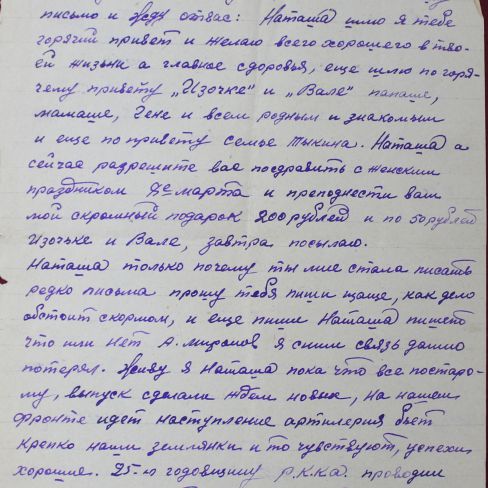 письмо и жду от вас: Наташа шлю я тебе
горячий привет и желаю всего хорошего в тво-
ей жизьни а главное сдоровья, еще шлю по горя-
чему привету „Изочке" и „Вале" папаше,
мамаше, Гене и всем родным и знакомым
и еще по привету семье Тыкина. Наташа а
сейчас разрешите вас поздравить с женским
праздником 8е марта и преподнести вам
мой скромный подарок 200 рублей и по 50 рублей
Изочьке и Вале, завтра посылаю.
Наташа только почему ты мне стала писать
редко письма прошу тебя пиши чаще, как дело
обстоит с кормом, и еще пиши Наташа пишет
что или нет А. миронов я с ним связь давно
потерял. Живу я Наташа пока что все постаро-
му, выпуск сделали ждем новых, на нашем
фронте идет наступление артилерия бьет
крепко наши землянки и то чувствуют, успехи
хорошие. 25-ю годовщину Р.К.К.А. проводим